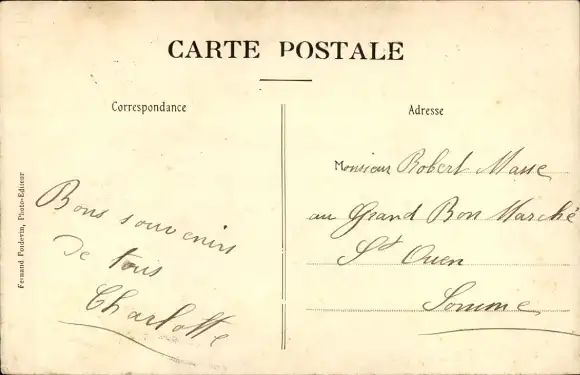 CARTE POSTALE
Correspondance
Adresse
Fernand Poidevin, Photo-Editeur
Bons souvenirs
de tous
Charlotte
Monsieur Robert Masse
au Grand Bon Marché
St Ouen
Somme